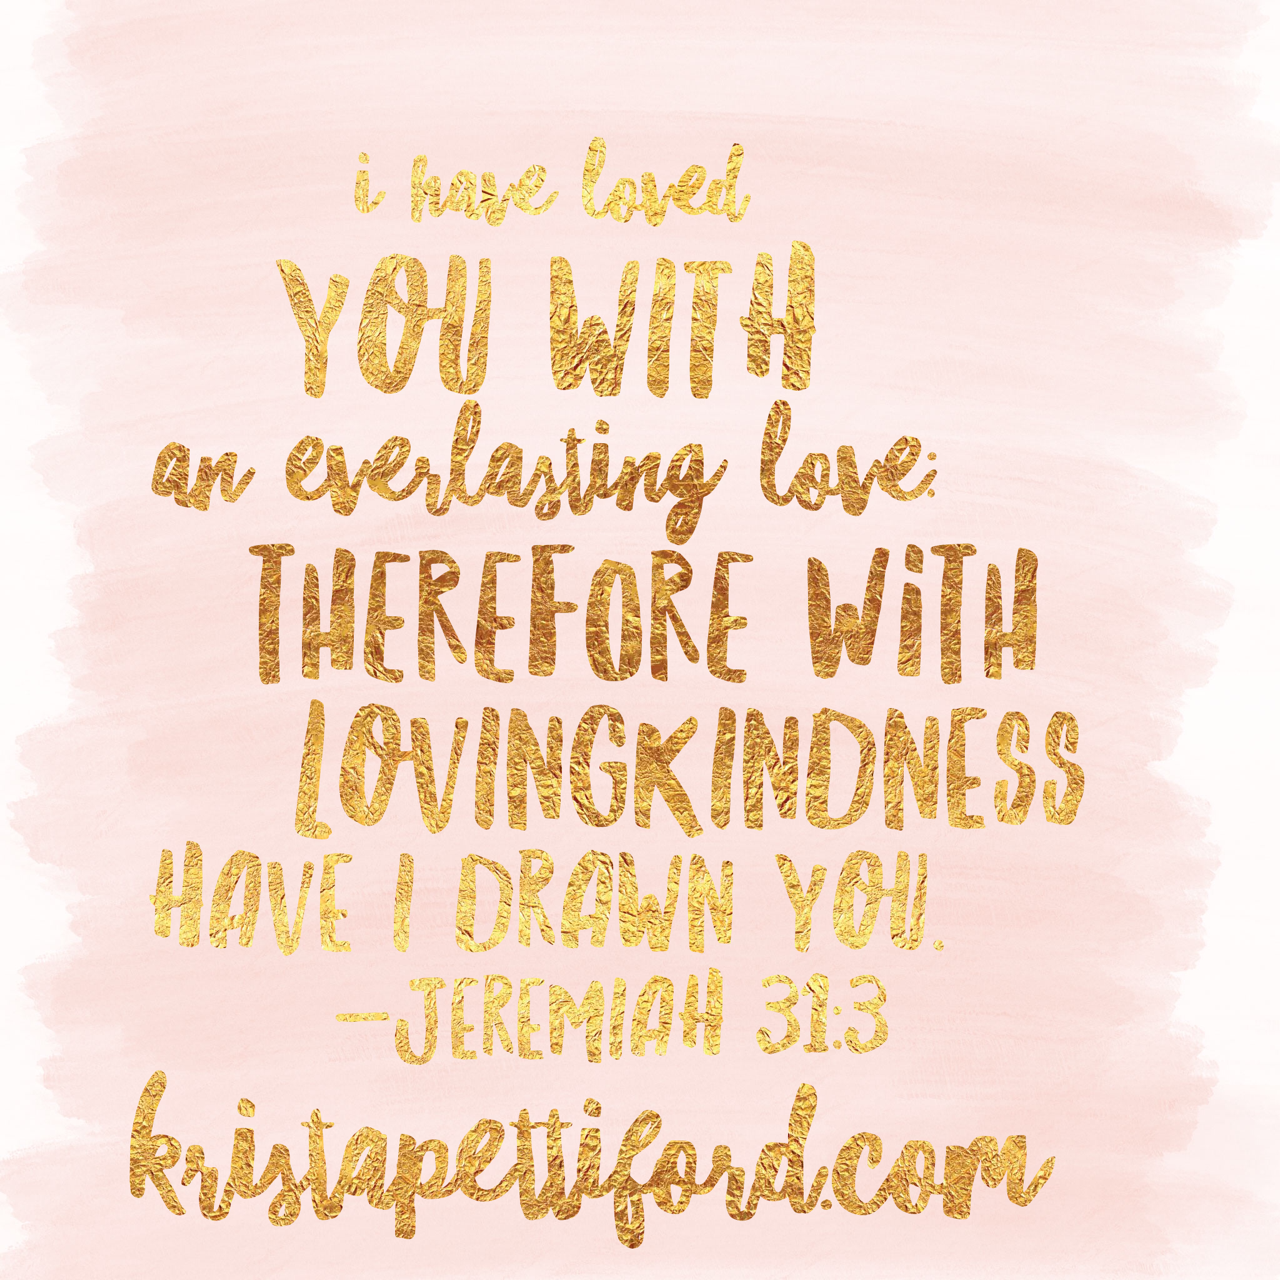 i have loved
YOU WITH
an everlasting love:
THEREFORE WiTH
LOVINGKINDNESS
HAVE I DRAWN YOU.
—JEREMIAH 31:3
kristapettiford.com